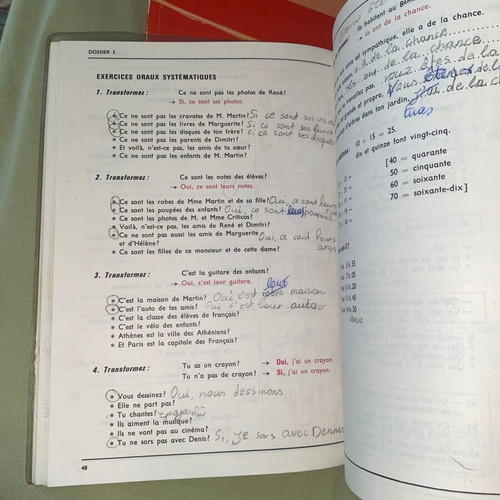 DOSSIER 3
EXERCICES ORAUX SYSTÉMATIQUES
1. Transformez : Ce ne sont pas les photos de René?
→ Si, ce sont ses photos.
Ce ne sont pas les cravates de M. Martin? Si ce sont ses
Ce ne sont pas les livres de Marguerite? Si ce sont ses
Ce ne sont pas les disques de ton frère? Si ce sont ses disques
• Ce ne sont pas les parents de Dimitri?
• Et voilà, n'est-ce pas, les amis de ta sœur?
• Ce ne sont pas les enfants de M. Martin?
2. Transformez : Ce sont les notes des élèves?
→ Oui, ce sont leurs notes.
Ce sont les robes de Mme Martin et de sa fille? Oui, ce sont leurs
Ce sont les poupées des enfants? Oui, ce sont leurs
• Ce sont les photos de M. et Mme Criticos?
Voilà, n'est-ce pas, les amis de René et Dimitri?
Ce ne sont pas aussi les amis de Marguerite Oui, ce sont leurs
et d'Hélène? amis
• Ce sont les filles de ce monsieur et de cette dame?
3. Transformez : C'est la guitare des enfants?
→ Oui, c'est leur guitare. leur
C'est la maison de Martin? Oui c'est maison
C'est l'auto de tes amis? Oui c'est leur auto
• C'est la classe des élèves de français?
• C'est le vélo des enfants?
• Athènes est la ville des Athéniens?
• Et Paris est la capitale des Français?
4. Transformez : Tu as un crayon? → Oui, j'ai un crayon.
Tu n'a pas de crayon? → Si, j'ai un crayon.
Vous dessinez? Oui, nous dessinons
• Elle ne part pas?
• Tu chantes?
• Ils aiment la musique?
• Ils ne vont pas au cinéma?
Tu ne sors pas avec Denis? Si, je sors avec Dennis
48
ils habitent au Bénin
→ Ils ont de la chance.
et sympathique, elle a de la chance.
a de la chance
de la chance
travailles pas, vous êtes de la
grande et propre. Vous de la
d'arbres dans ton jardin, de la ch
tu as
10 + 15 = 25.
dix et quinze font vingt-cinq.
[40 = quarante
50 = cinquante
60 = soixante
70 = soixante-dix]